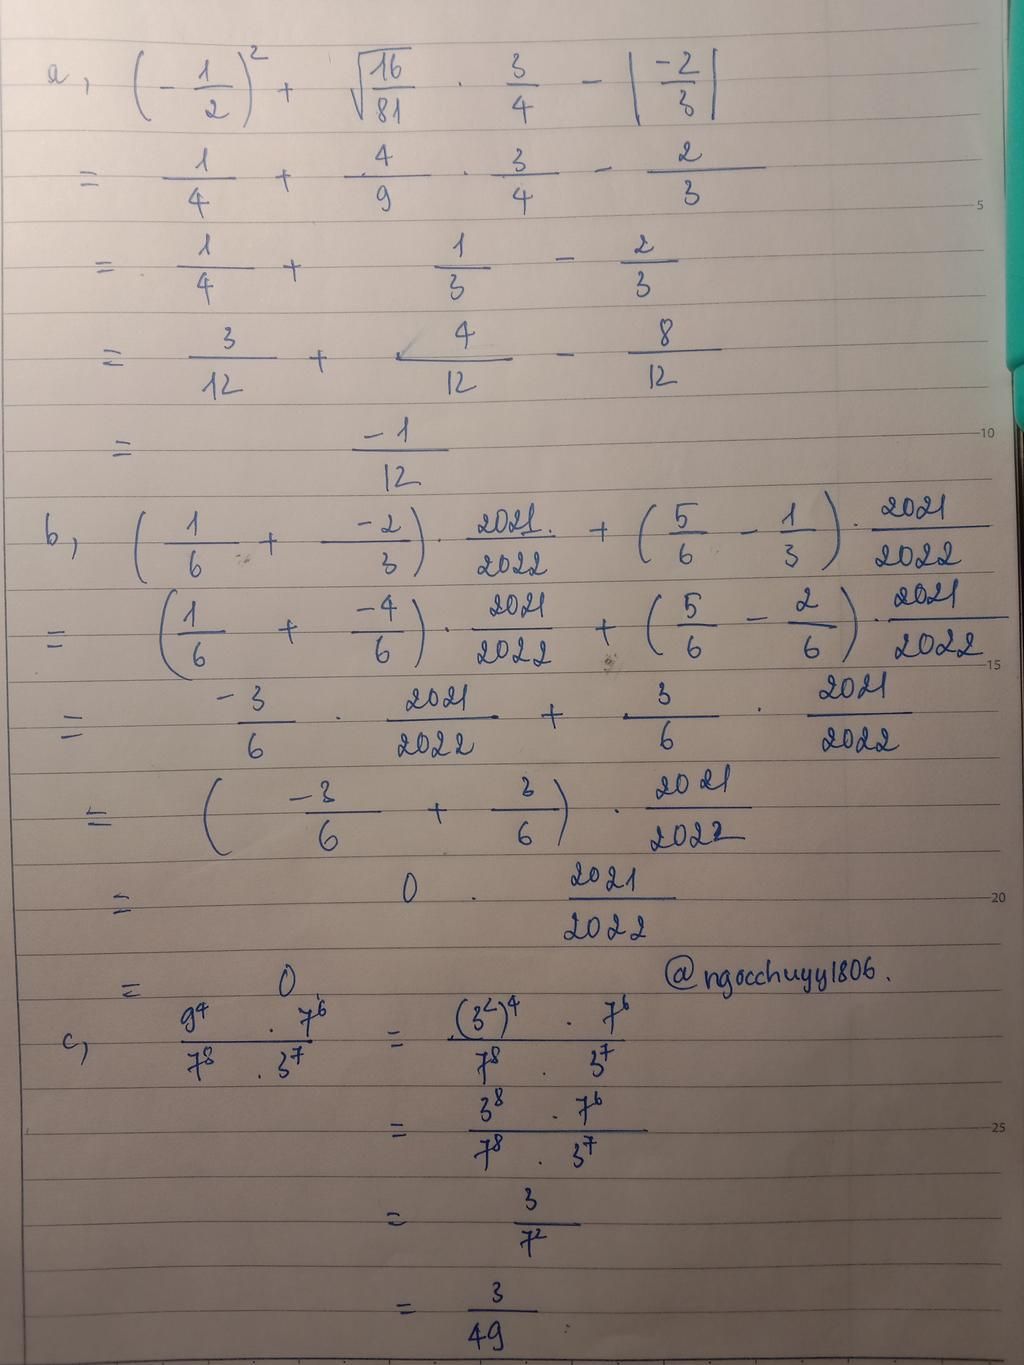 a, (-1/2)² + √(16/81) · 3/4 - |-2/3|
= 1/4 + 4/9 · 3/4 - 2/3
= 1/4 + 1/3 - 2/3
= 3/12 + 4/12 - 8/12
= -1/12
b, (1/6 + -2/3) · 2021/2022 + (5/6 - 1/3) · 2021/2022
= (1/6 + -4/6) · 2021/2022 + (5/6 - 2/6) · 2021/2022
= -3/6 · 2021/2022 + 3/6 · 2021/2022
= (-3/6 + 3/6) · 2021/2022
= 0 · 2021/2022
= 0
@ngocchuyy1806.
c, (9⁴ · 7⁶)/(7⁸ · 3⁷) = ((3²)⁴ · 7⁶)/(7⁸ · 3⁷)
= (3⁸ · 7⁶)/(7⁸ · 3⁷)
= 3/7²
= 3/49
5
10
15
20
25